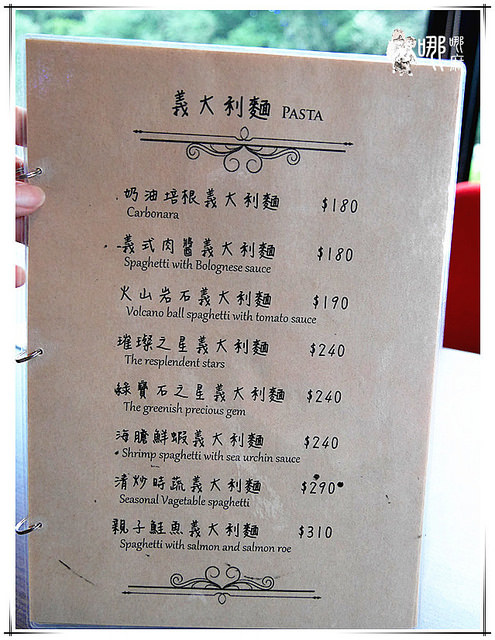 義大利麵 PASTA
奶油培根義大利麵 $180
Carbonara
義式肉醬義大利麵 $180
Spaghetti with Bolognese sauce
火山岩石義大利麵 $190
Volcano ball spaghetti with tomato sauce
璀璨之星義大利麵 $240
The resplendent stars
綠寶石之星義大利麵 $240
The greenish precious gem
海膽鮮蝦義大利麵 $240
Shrimp spaghetti with sea urchin sauce
清炒時蔬義大利麵 $290
Seasonal Vagetable spaghetti
親子鮭魚義大利麵 $310
Spaghetti with salmon and salmon roe